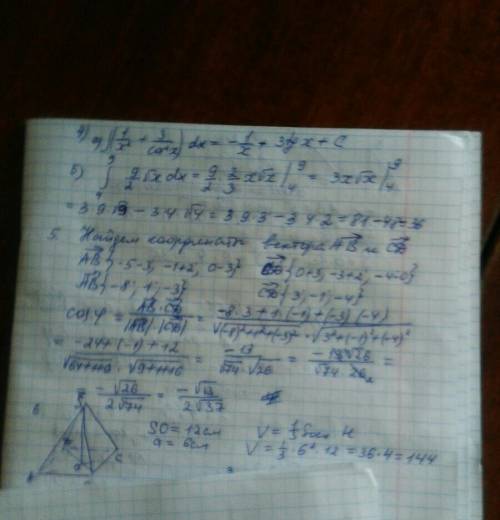 4) a) ∫(1/x² + 3/cos²x) dx = -1/x + 3tg x + C
б) ∫₄⁹ 9/2 √x dx = 9/2 · 2/3 x√x |₄⁹ = 3x√x |₄⁹
= 3·9·√9 - 3·4·√4 = 3·9·3 - 3·4·2 = 81 - 24 = 36
5. Найдем координаты вектора AB и CD
AB{-5-3; -1+2; 0-3} CD{0+3; -3+2; -4-0}
AB{-8; 1; -3} CD{3; -1; -4}
cos φ = AB·CD / |AB|·|CD| = -8·3 + 1·(-1) + (-3)·(-4) / √(-8)²+1²+(-3)² · √3²+(-1)²+(-4)²
= -24 + (-1) + 12 / √64+1+9 · √9+1+16 = -13 / √74 · √26 = -13√26 / √74 · 26₂ =
= -√26 / 2√74 = -√13 / 2√37
6.
SO = 12см V = 1/3 Sосн. H
a = 6см V = 1/3 · 6² · 12 = 36 · 4 = 144